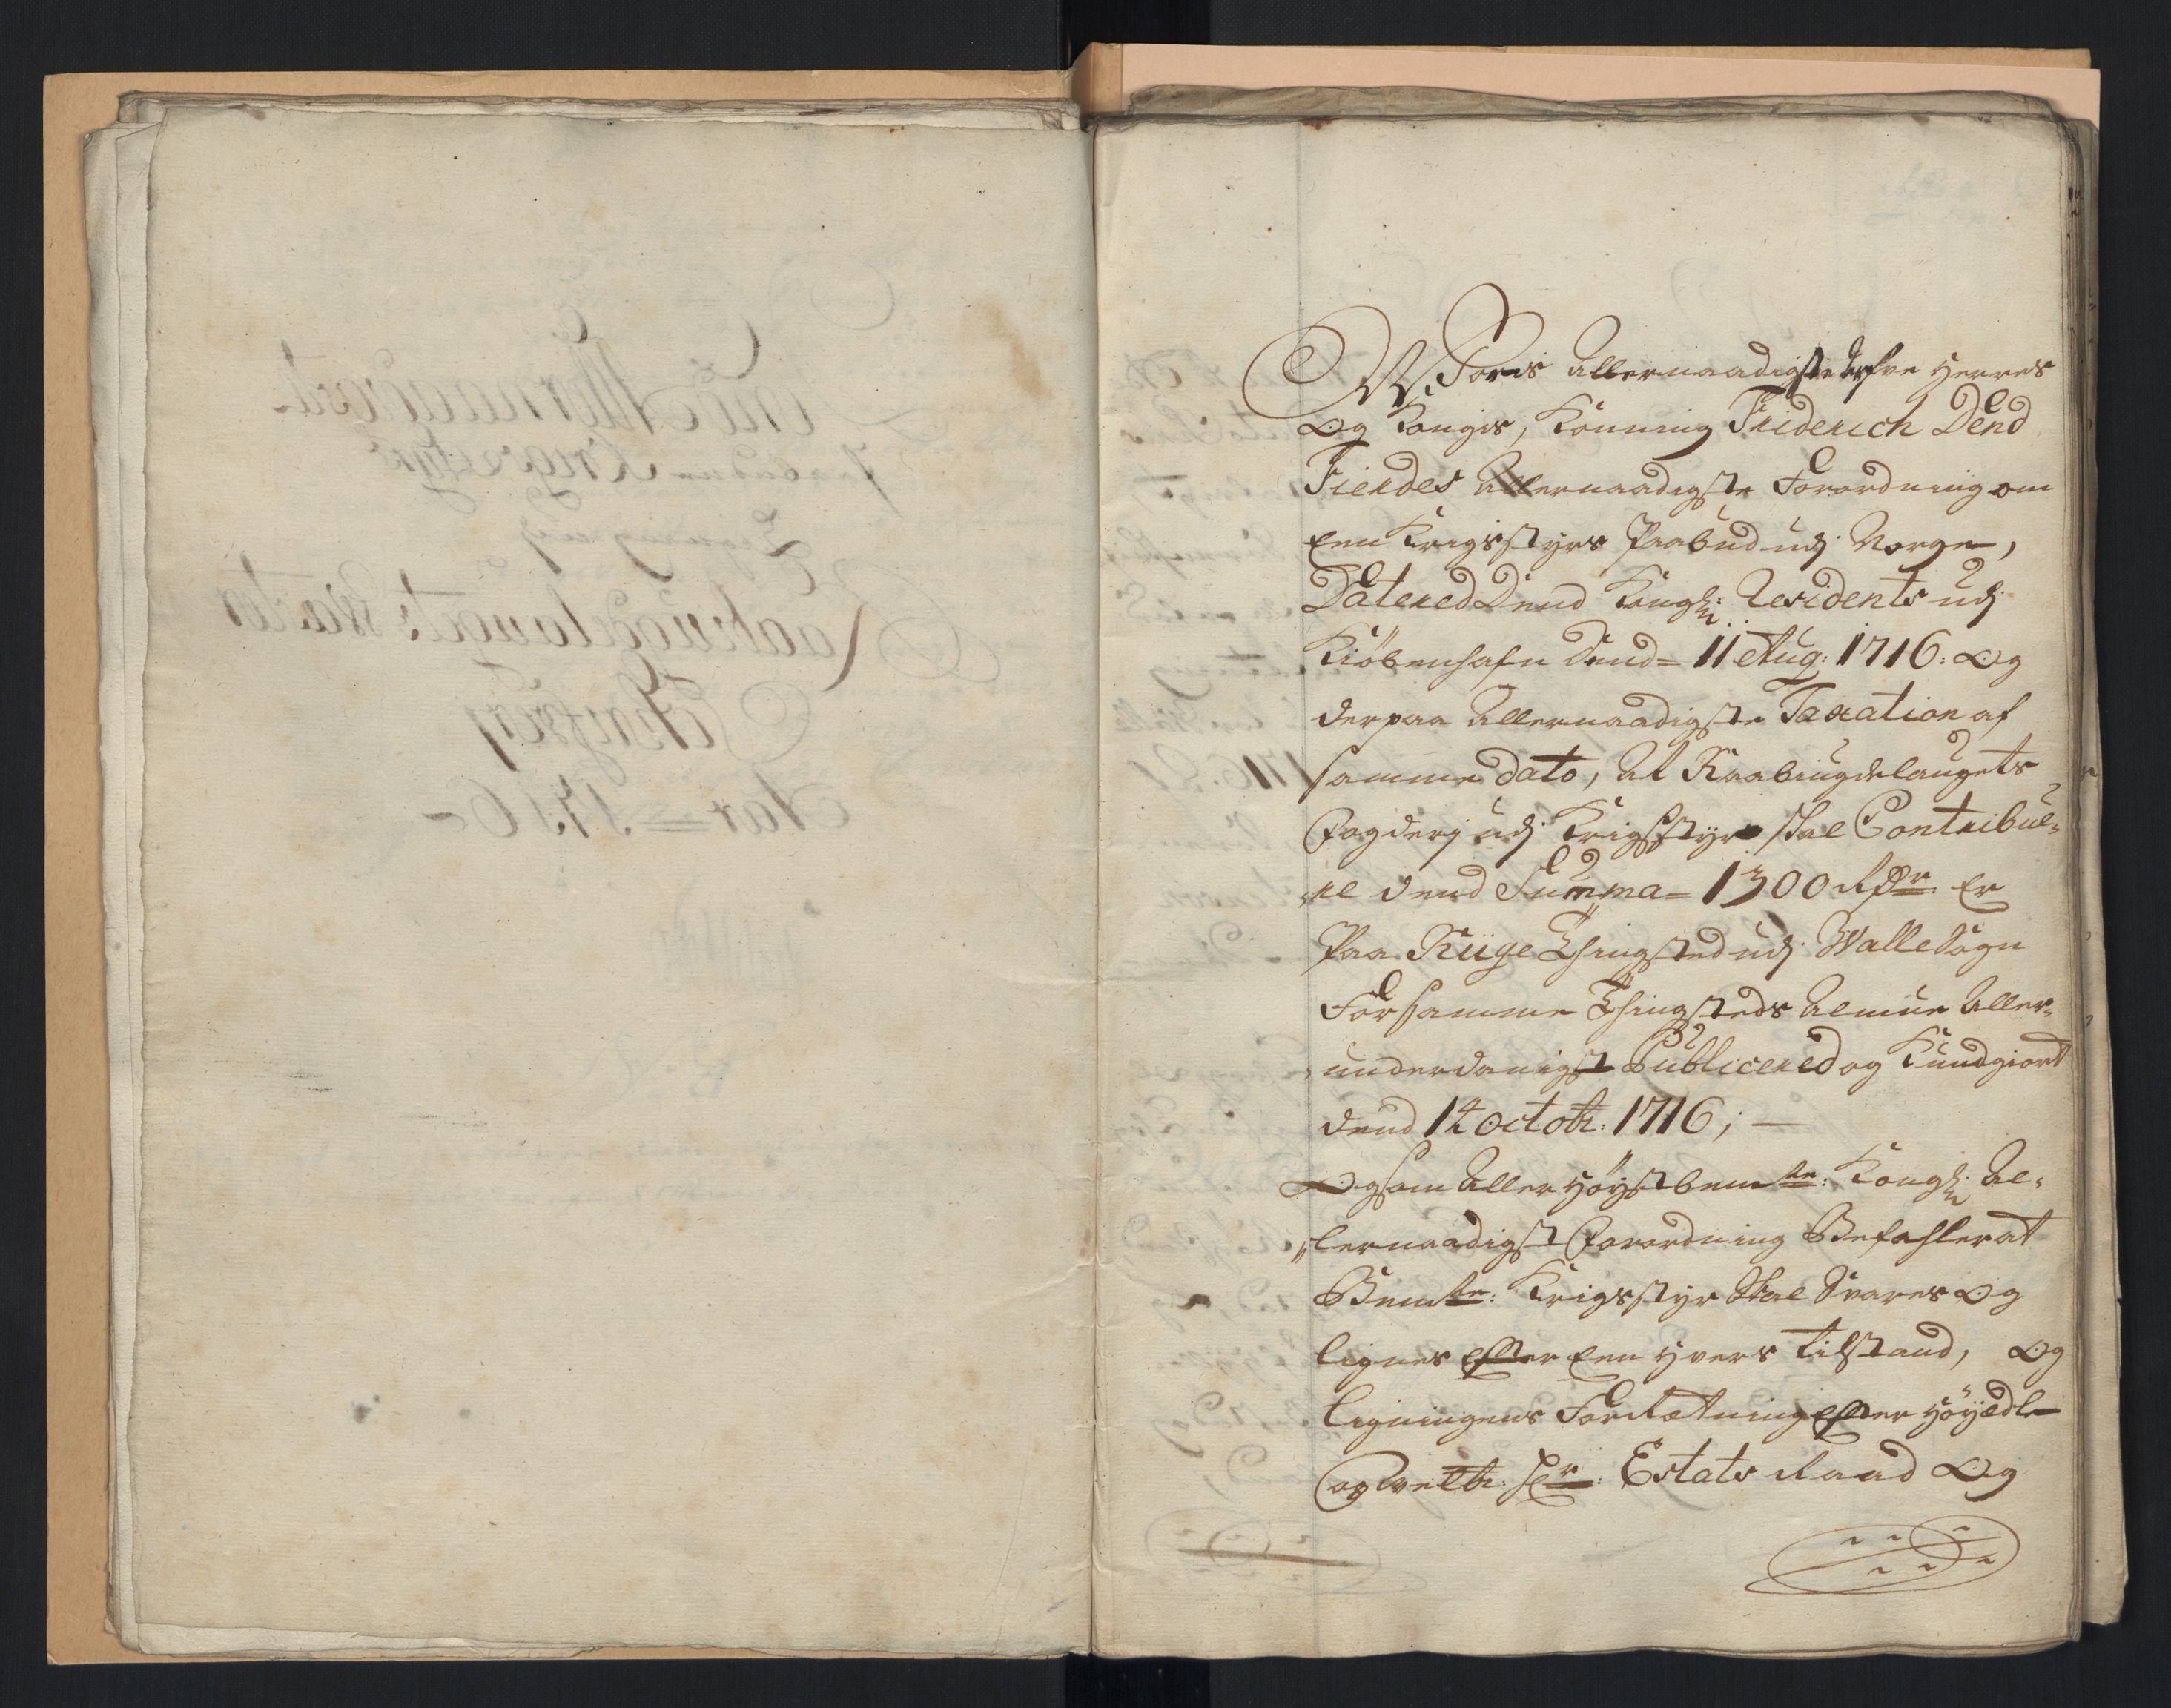 Woris Allernaadigste Arfve Herres
Og Kongis, Konning Friderich Dend
Fierdes Allernaadigste Forordning om
Een Krigsstyrs Paabud udj Norge,
Datered Dend Kongl: Residents udj
Kiöbenhafn Dend = 11 Aug: 1716: Og
derpaa Allernaadigste Taxation af
samme Dato, At Raabiugdelaugets
Fogderj udj Krigsstyr skal Contribue-
-re dend Summa = 1300 Rdr Er
Paa Riige Thingsted udj Walle Sogn
For samme Thingsteds Almue Aller-
-underdanigst Publicered og Kundgiort
dend 14 Octobr: 1716; —
Og som Allerhöyst bemte: Kongl: Al-
-lernaadigst Forordning Befahler at
Bemte: Krigsstyr Skal Svares Og
lignes efter Een hvers tilstand, Og
ligningens Forfatning efter Höyædle
og velb: Hr: Estats Raad Og